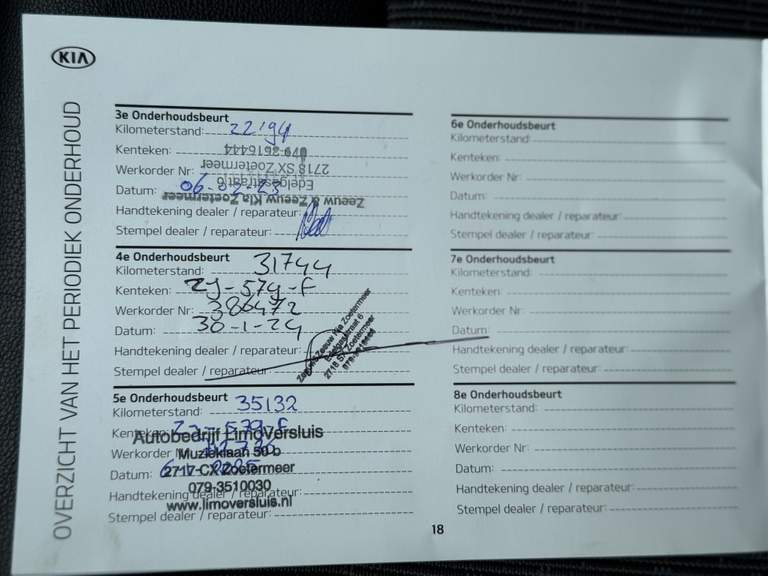 KIA
OVERZICHT VAN HET PERIODIEK ONDERHOUD
3e Onderhoudsbeurt
Kilometerstand:
Kenteken: 079-3616444
Werkorder Nr: 2718 SX Zoetermeer
Edelgasstraat 6
Datum: 06-02-23
Zeeuw & Zeeuw Kia Zoetermeer
Handtekening dealer / reparateur:
Stempel dealer / reparateur:
4e Onderhoudsbeurt
Kilometerstand: 31744
Kenteken: ZJ-579-F
Werkorder Nr: 386472
Datum: 30-1-24
Handtekening dealer / reparateur:
Stempel dealer / reparateur:
Zeeuw & Zeeuw Kia Zoetermeer
Edelgasstraat 6
2718 SX Zoetermeer
5e Onderhoudsbeurt
Kilometerstand: 35132
Kenteken: ZJ-579-F
Autobedrijf LimoVersluis
Werkorder Nr
Muzieklaan 50 b
Datum:
2717-CX Zoetermeer
079-3510030
Handtekening dealer / reparateur:
www.limoversluis.nl
Stempel dealer / reparateur:
6e Onderhoudsbeurt
Kilometerstand:
Kenteken:
Werkorder Nr:
Datum:
Handtekening dealer / reparateur:
Stempel dealer / reparateur:
7e Onderhoudsbeurt
Kilometerstand:
Kenteken:
Werkorder Nr:
Datum:
Handtekening dealer / reparateur:
Stempel dealer / reparateur:
8e Onderhoudsbeurt
Kilometerstand:
Kenteken:
Werkorder Nr:
Datum:
Handtekening dealer / reparateur:
Stempel dealer / reparateur:
18